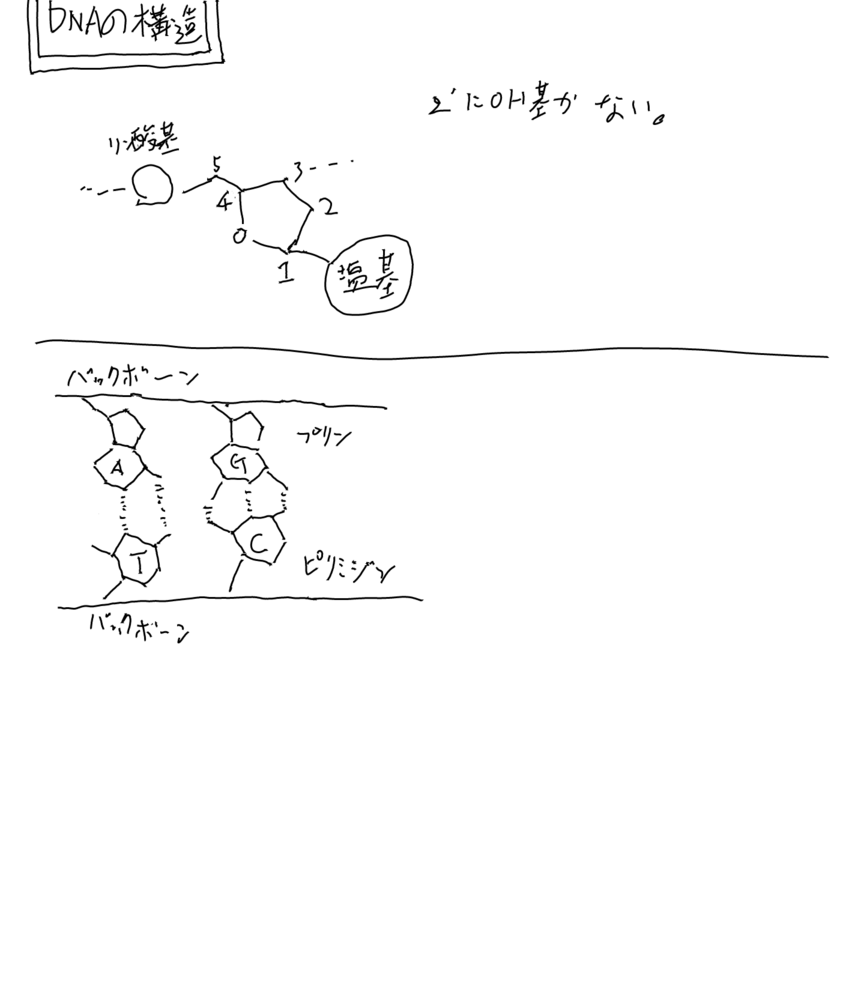 DNAの構造
2'にOH基がない。
リン酸基
5
3
4
2
O
1
塩基
バックボーン
プリン
A
G
T
C
ピリミジン
バックボーン